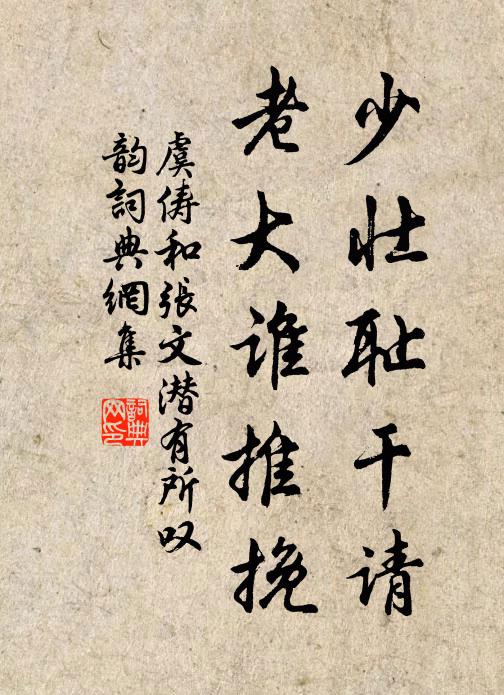 少壮耻干请
老大谁推挽
虞俦和張文潜有所叹
韵詞典網集
詞典
网印